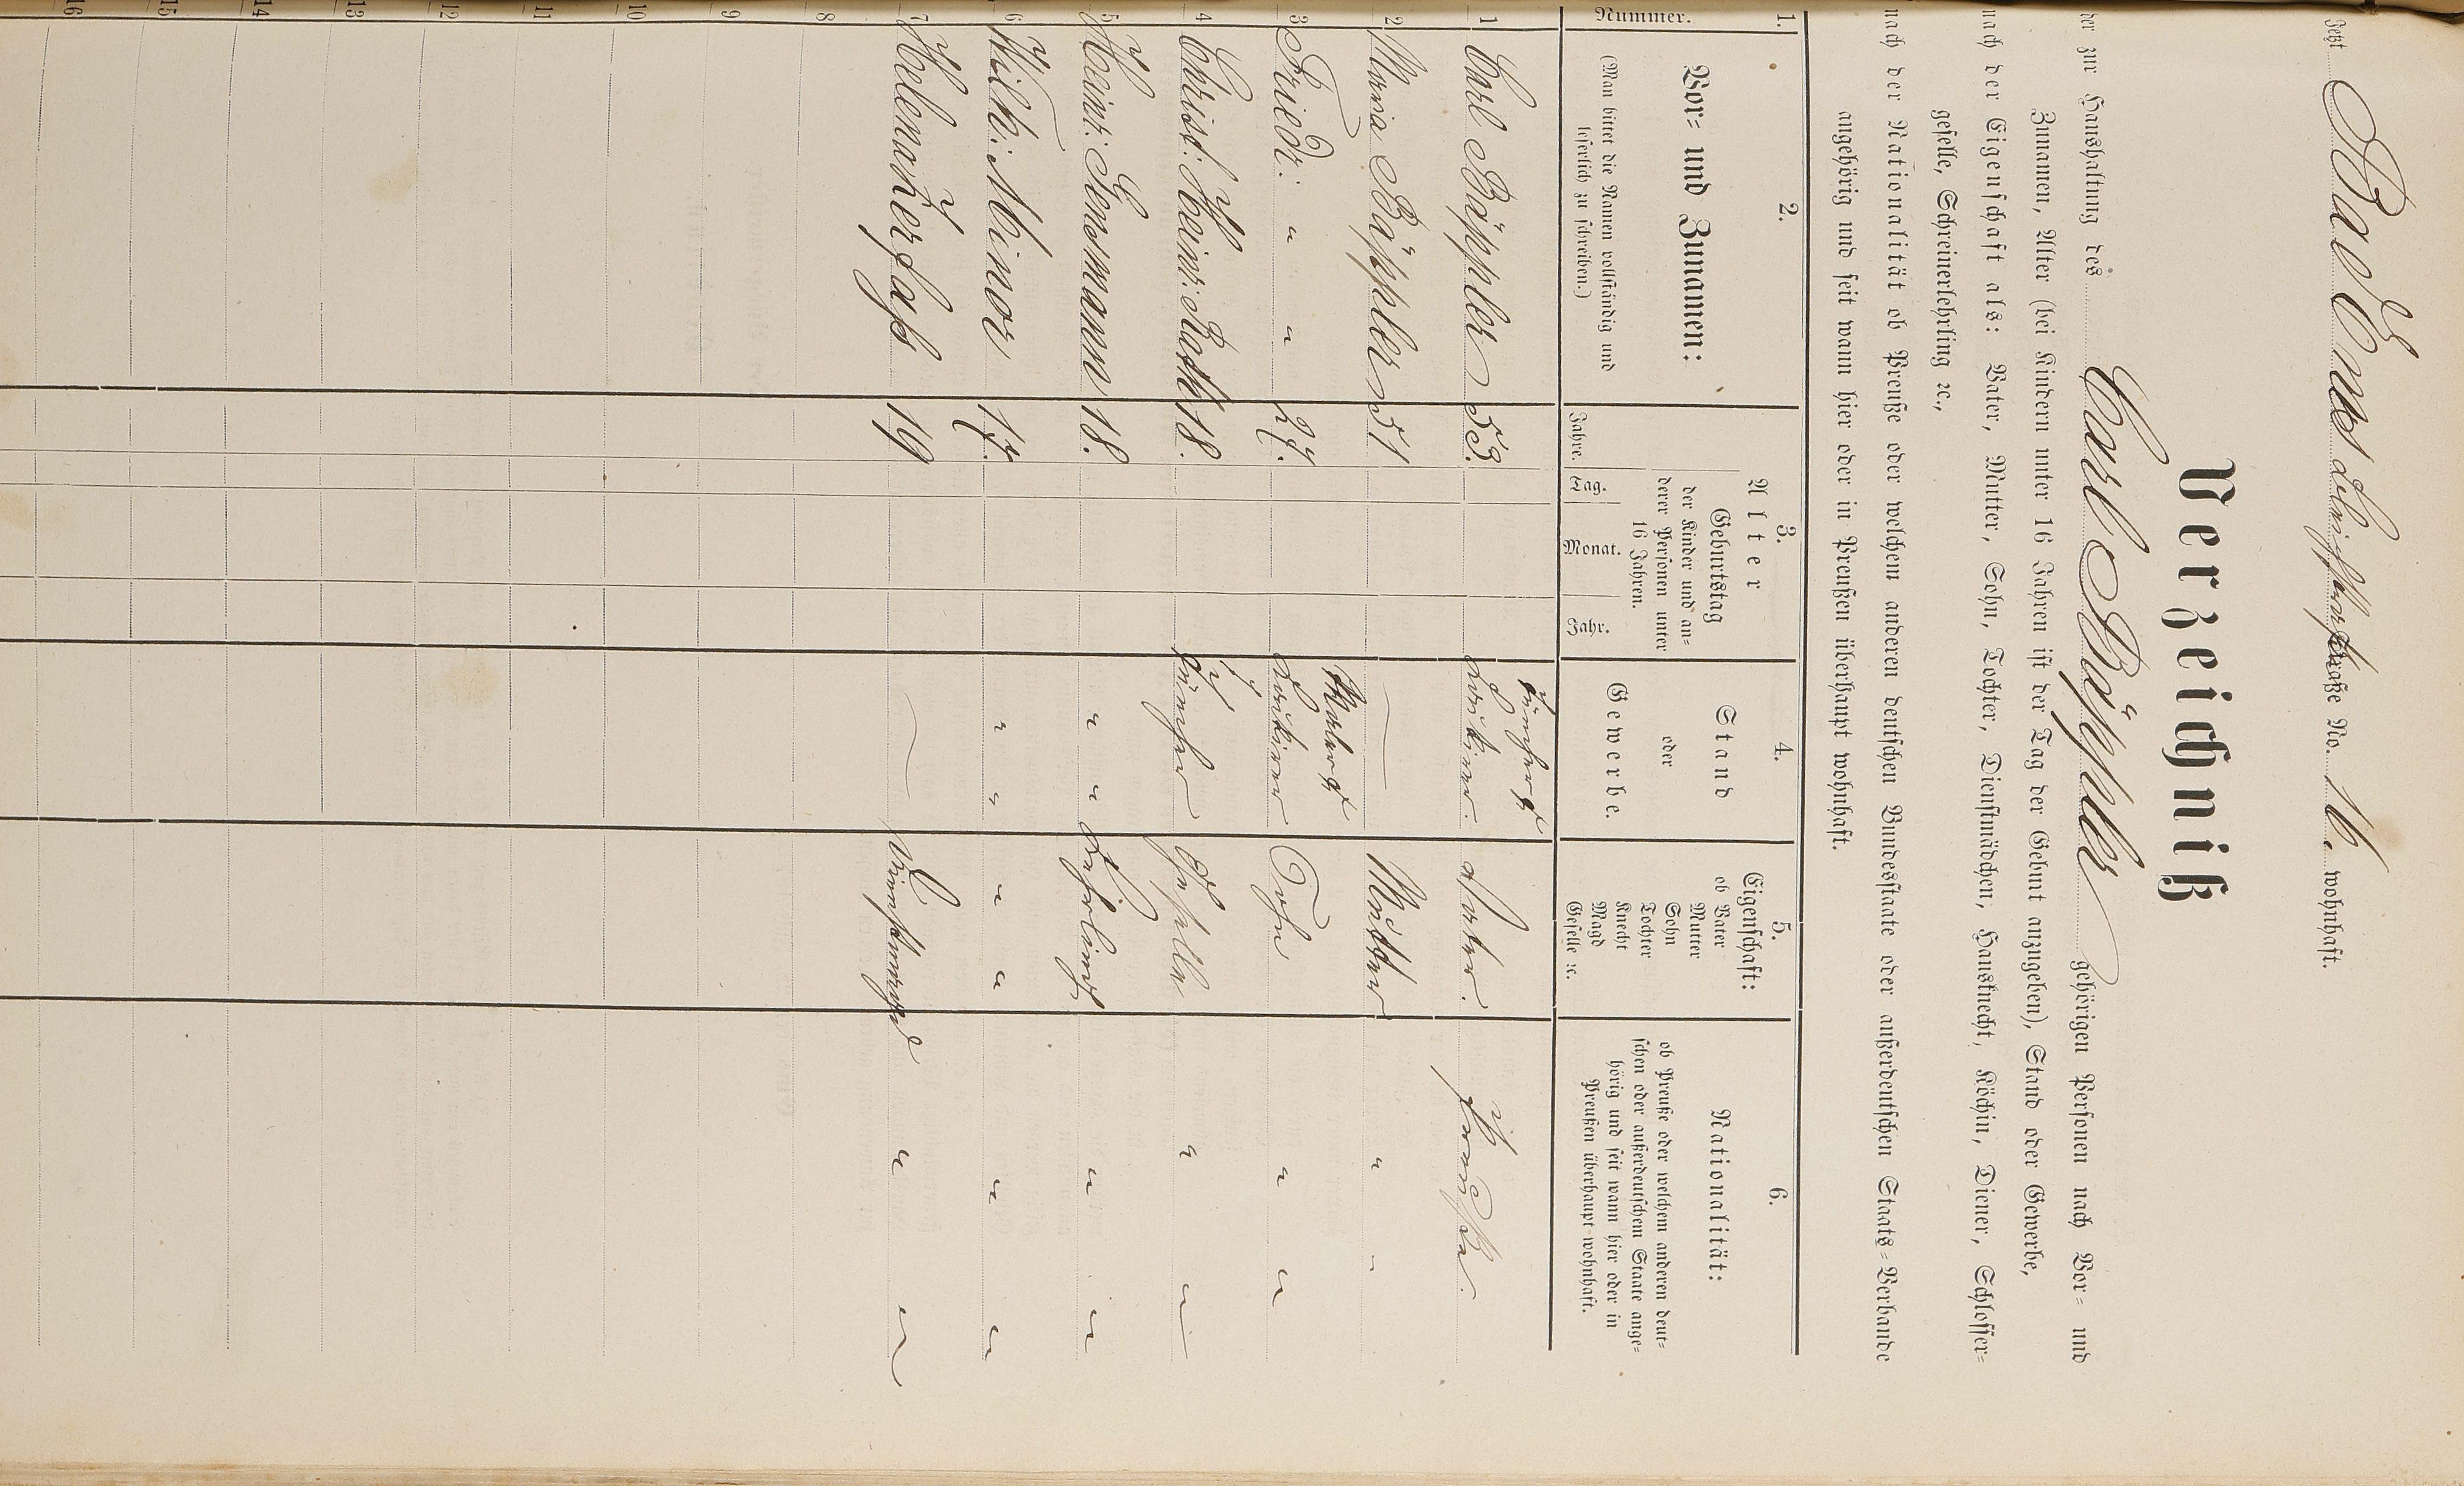 Jetzt Bad Ems straße No. 16. wohnhaft.
Verzeichniß
der zur Haushaltung des Carl Bäppler gehörigen Personen nach Vor= und
Zunamen, Alter (bei Kindern unter 16 Jahren ist der Tag der Geburt anzugeben), Stand oder Gewerbe,
nach der Eigenschaft als: Vater, Mutter, Sohn, Tochter, Dienstmädchen, Hausknecht, Köchin, Diener, Schlosser=
geselle, Schreinerlehrling ꝛc.,
nach der Nationalität ob Preuße oder welchem anderen deutschen Bundesstaate oder außerdeutschen Staats=Verbande
angehörig und seit wann hier oder in Preußen überhaupt wohnhaft.
1. 2. 3. 4. 5. 6.
Nummer.
Vor= und Zunamen:
(Man bittet die Namen vollständig und
leserlich zu schreiben.)
Alter
Geburtstag
der Kinder und an=
derer Personen unter
16 Jahren.
Jahre. Tag. Monat. Jahr.
Stand
oder
Gewerbe.
Eigenschaft:
ob Vater
Mutter
Sohn
Tochter
Knecht
Magd
Geselle ꝛc.
Nationalität:
ob Preuße oder welchem anderen deut=
schen oder außerdeutschen Staate ange=
hörig und seit wann hier oder in
Preußen überhaupt wohnhaft.
Tüncher &
1 Carl Bäppler 53. Lackirer. Vater. Preuße.
2 Maria Bäppler 51 — Mutter " "
Maler &
3 Friedr: " " 27. Lackirer Sohn " "
4 Christ: Heinr: Roth 18. Tüncher Geselle " "
5 Heinr: Lendmann 18. " " Lehrling " "
6 Wilh: Minor 17. " " " " " "
7 Helena Kerfaß 19 — Dienstmagd " "
8
9
10
11
12
13
14
15
16